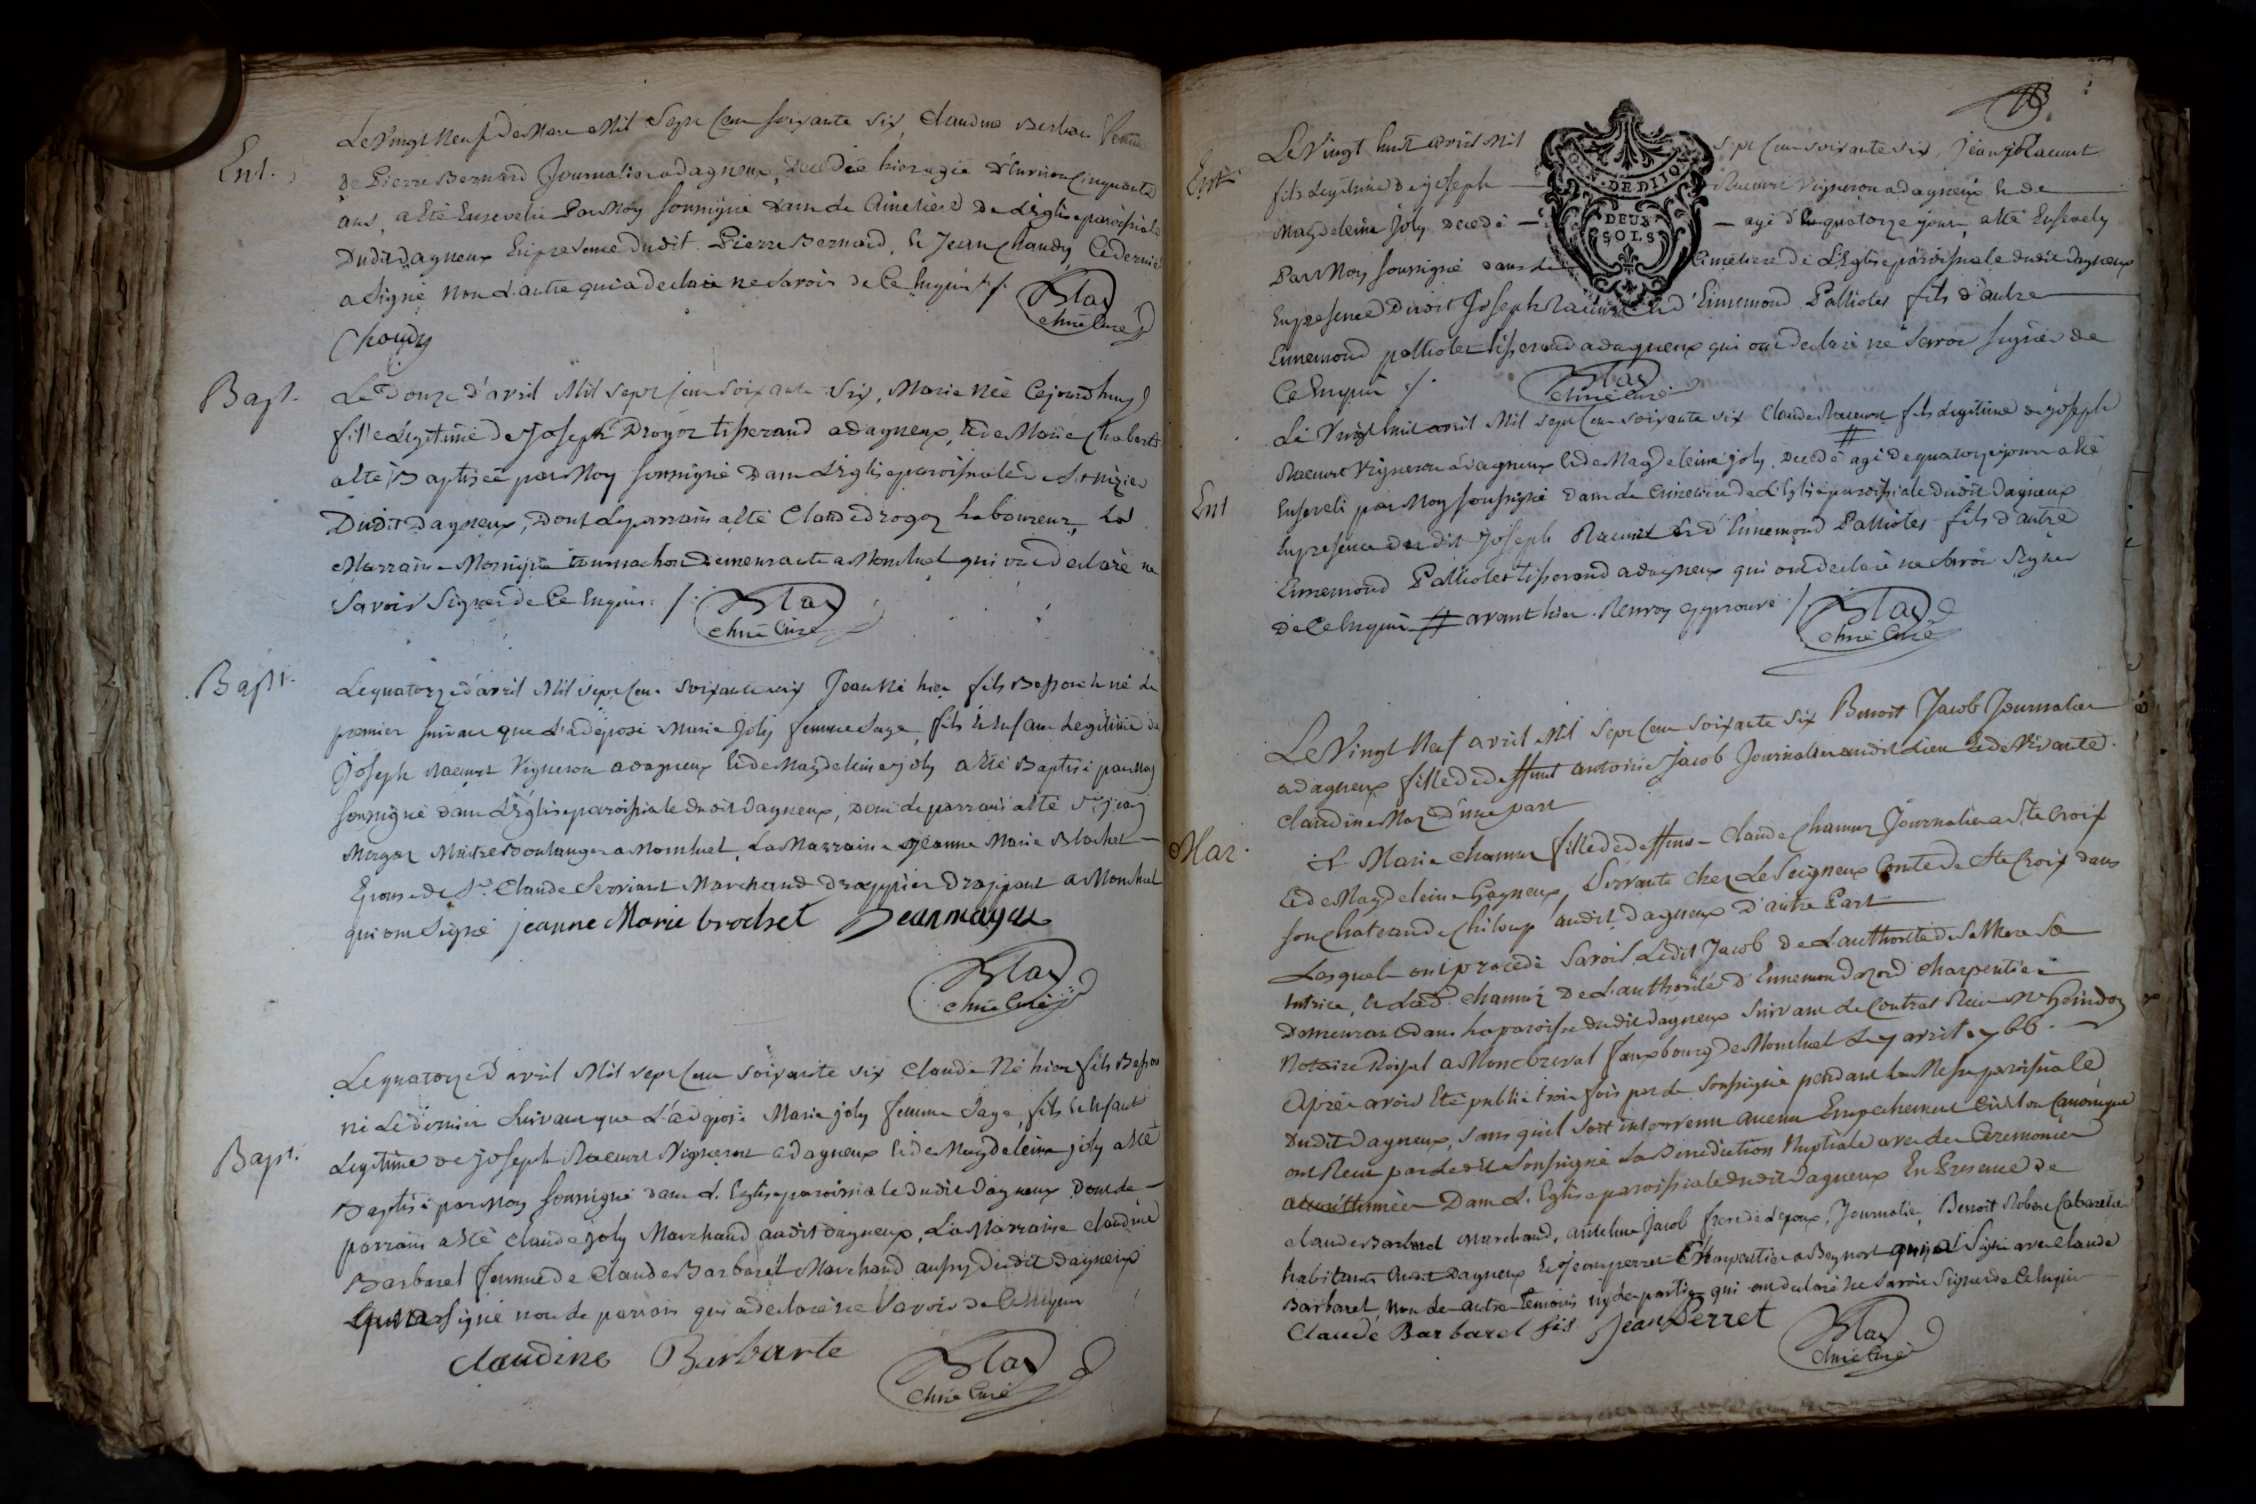 Ent.
Le Vingt Neuf De Mars Mil Sept Cent soixante six, Claudine Berban Veuve
de Pierre Bernard Journalier a dagneux, decedée hier agée d'environ Cinquante
ans, a Eté Ensevelie Par Moy soussigné dans le Cimetiere De L'Eglise paroissiale
Dudit Dagneux En presence Dudit Pierre Bernard, & Jean Chaudy Ce dernier
a signé Non L'autre qui a declaré ne savoir de Ce Enquis ./.
Chaudy
Blay
Curé
Bapt.
Le Douze d'avril Mil sept Cent soixante six, Marie Née Cejourdhuy
fille Légitime de Joseph Drogoz tisserand a dagneux, & de Marie Chabert
a Eté Baptisée par Moy soussigné Dans L'Eglise paroissiale
Dudit Dagneux, Dont Le parrain a Eté Claude drogoz Laboureur, La
Marraine demeurante a Montluel qui ont declaré ne
savoir Signer de Ce Enquis ./.
Blay
Curé
Bapt.
Le quatorze d'avril Mil sept Cent soixante six Jean Né hier fils Besson & né Le
premier suivant que L'a déposé Marie Joly femme Sage, fils & Enfant Legitime de
Joseph Racurt Vigneron a dagneux & de Magdeleine joly a Eté Baptisé par Moy
soussigné dans L'Eglise paroissiale dudit Dagneux, Dont Le parrain a Eté Sr jean
Maître Boulanger a Montluel, La Marraine Jeanne Marie Brochet
Epouse de Sr. Claude Servient Marchand Drappier Drappant a Montluel
qui ont Signé jeanne Marie brochet
Blay
Curé
Bapt.
Le quatorze d'avril Mil sept Cent soixante six Claude Né hier fils Besson
né Le dernier Suivant que L'a déposé Marie joly femme Sage, fils & Enfant
Legitime de joseph Racurt Vigneron a Dagneux & de Magdeleine joly a Eté
Baptisé par Moy soussigné dans L'Eglise paroissiale dudit Dagneux Dont Le
parrain a Eté Claude joly Marchand audit dagneux, La Marraine Claudine
Barbaret femme de Claude Barbaret Marchand aussy Dudit Dagneux
qui a signé non Le parrain qui a declaré ne Savoir de Ce Enquis
Claudine Barbarte
Blay
Curé
Ent.
Le Vingt huit avril Mil Sept Cent soixante six, Jean Racurt
fils Legitime de joseph Racurt Vigneron a Dagneux & de
Magdeleine Joly decedé agé de quatorze jours, a Eté Ensevely
Par Moy soussigné dans Le Cimetiere de L'Eglise paroissiale dudit Dagneux
En presence Dudit Joseph Racurt & d'Ennemond Palliotet fils d'autre
Ennemond palliotet tisserand a dagneux qui ont declaré ne savoir signer de
Ce Enquis ./.
DE DIJON
DEUX
SOLS
Blay
Curé
Ent
Le Vingt huit avril Mil sept Cent soixante six Claude Racurt fils Legitime de joseph
Racurt Vigneron a Dagneux & de Magdeleine joly decedé # agé de quatorze jours a Eté
Enseveli par Moy soussigné dans Le Cimetiere de L'Eglise paroissiale dudit Dagneux
En presence dudit Joseph Racurt & d'Ennemond Palliotet fils d'autre
Ennemond Palliotet tisserand a dagneux qui ont declaré ne savoir Signer
de Ce Enquis # avant hier. Renvoy approuvé ./.
Blay
Curé
Mar.
Le Vingt Neuf avril Mil Sept Cent soixante six Benoit Jacob Journalier
a dagneux fils de deffunt antoine Jacob Journalier audit Lieu & de Vivante
Claudine D'une part
& Marie Chanus fille de deffunt Claude Chanus Journalier a Ste Croix
& de Magdeleine Gagneux, Servante Chez Le Seigneur Comte de Ste Croix dans
son Chateau de Chiloup audit dagneux D'autre Part
Lesquels ont procedé Savoir Ledit Jacob de L'authorité de Sa Mere Sa
tutrice, & Lad. Chanus De L'authorité d'Ennemond charpentier
Demeurant dans La paroisse dudit Dagneux suivant Le Contrat Recu Me
Notaire Royal a Faux bourg de Montluel Le 7 avril 1766.
Après avoir Eté publié trois fois par Le soussigné pendant La Messe paroissiale
Dudit Dagneux, sans qu'il soit intervenu aucun Empechement Civil ou Canonique
ont Recu par Ledit Soussigné La Benediction Nuptiale avec Les Ceremonies
accoutumées Dans L'Eglise paroissiale dudit Dagneux En Presence De
Claude Barbaret Marchand, anthelme Jacob frere de L'epoux, Journalier, Benoit Robert Cabaretier
habitants dudit Dagneux & jean perret Charpentier a Beynost qui a Signé avec Claude
Barbaret, Non Les autres temoins ny Les parties qui ont declaré Ne savoir Signer de Ce Enquis
Claude Barbaret fils Jean Perret
Blay
Curé